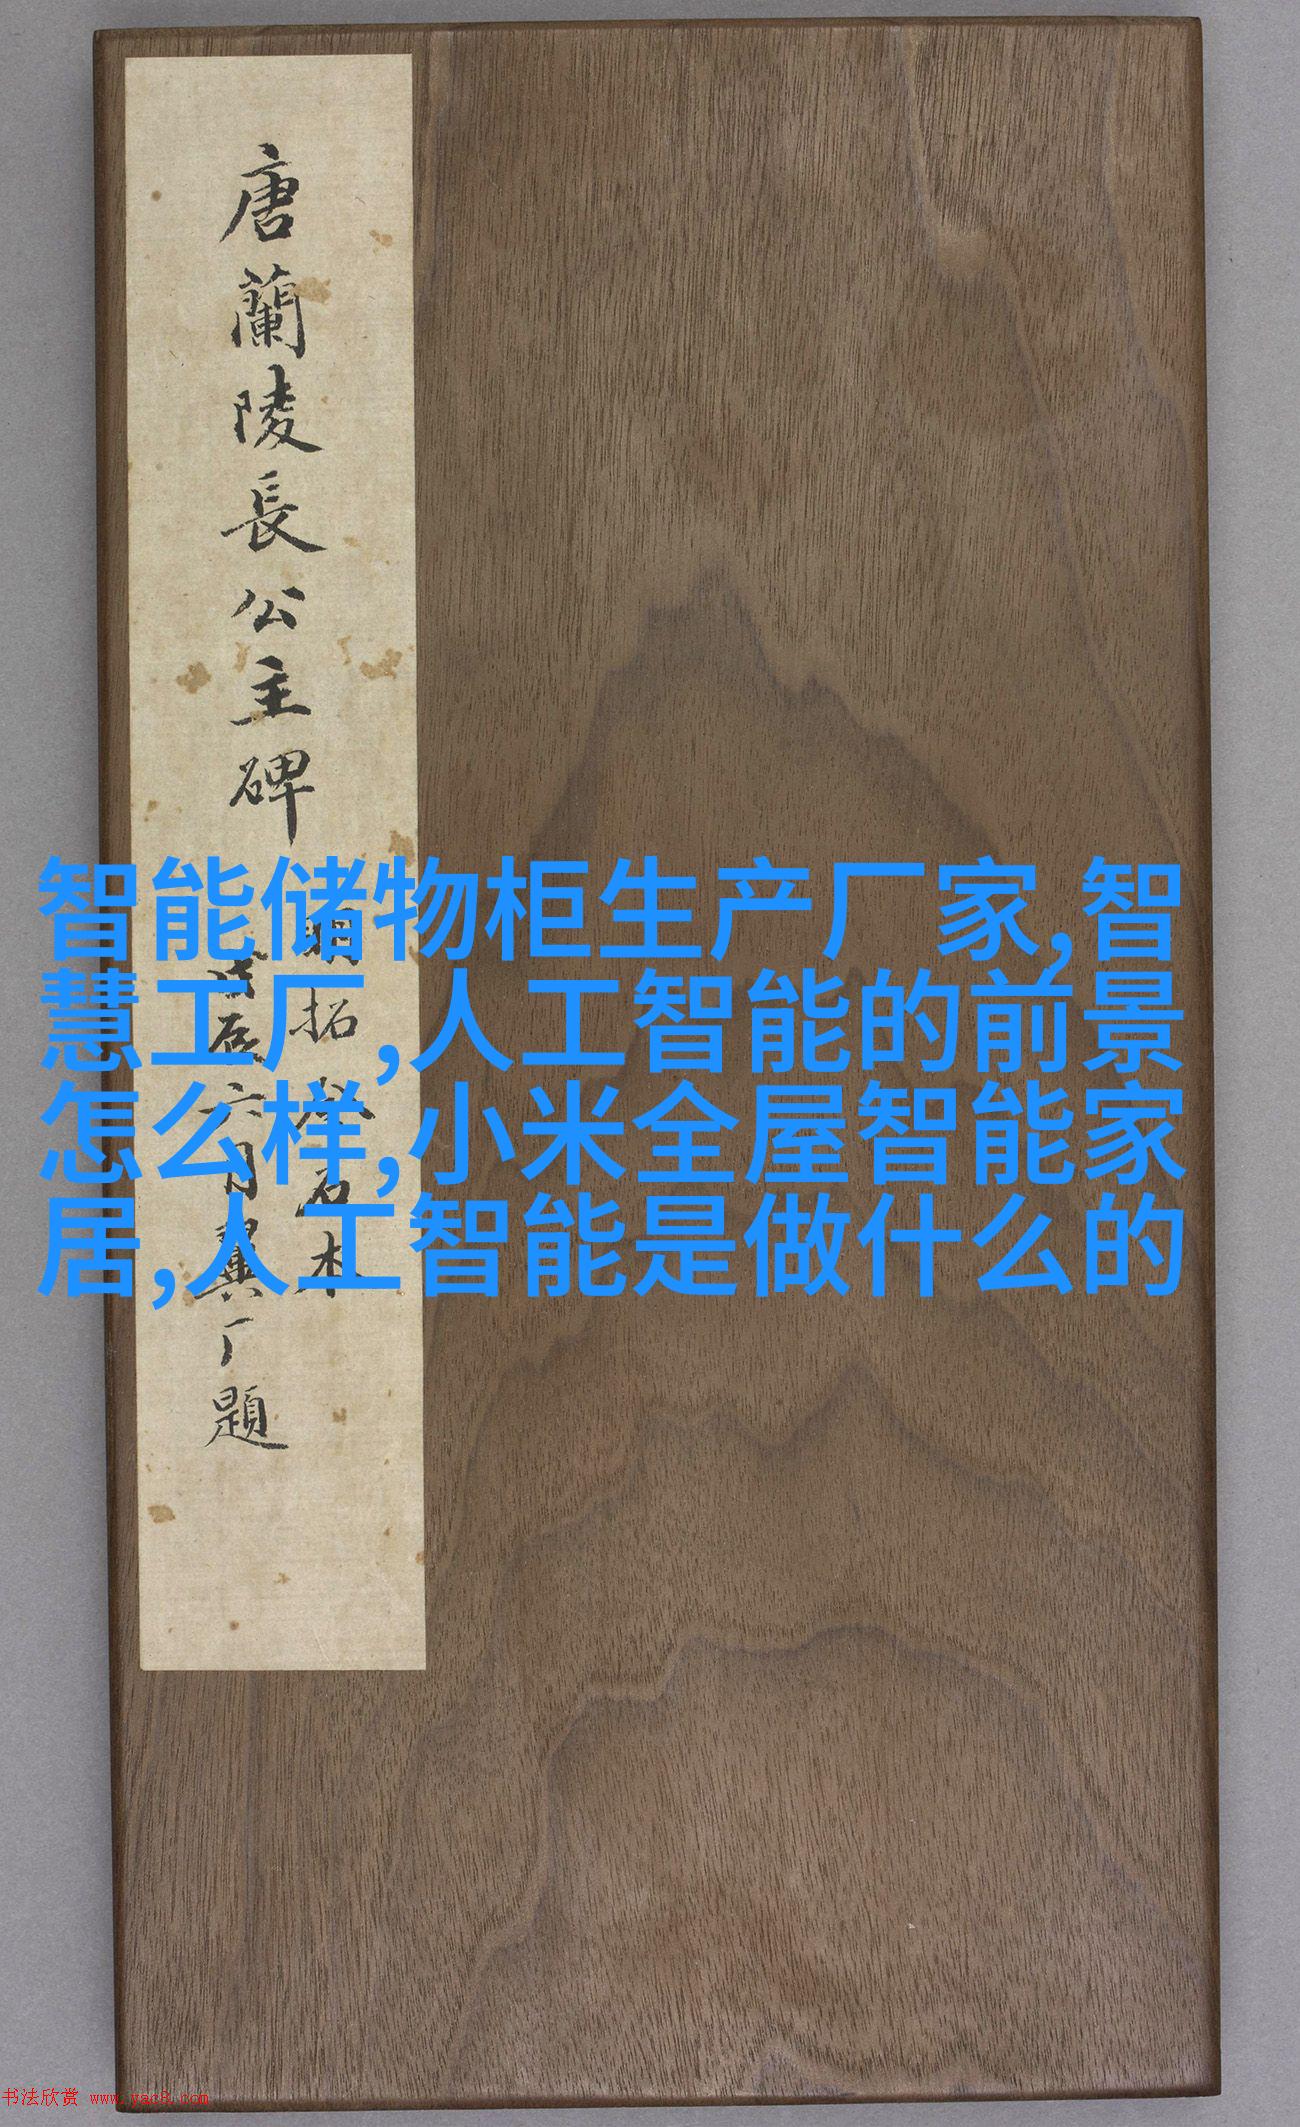 唐蘭陵長公主碑
明拓 石本
辰六月翼厂題
智能储物柜生产厂家,智
慧工厂,人工智能的前景
怎么样,小米全屋智能家
居,人工智能是做什么的
书法欣赏 www.yac8.com